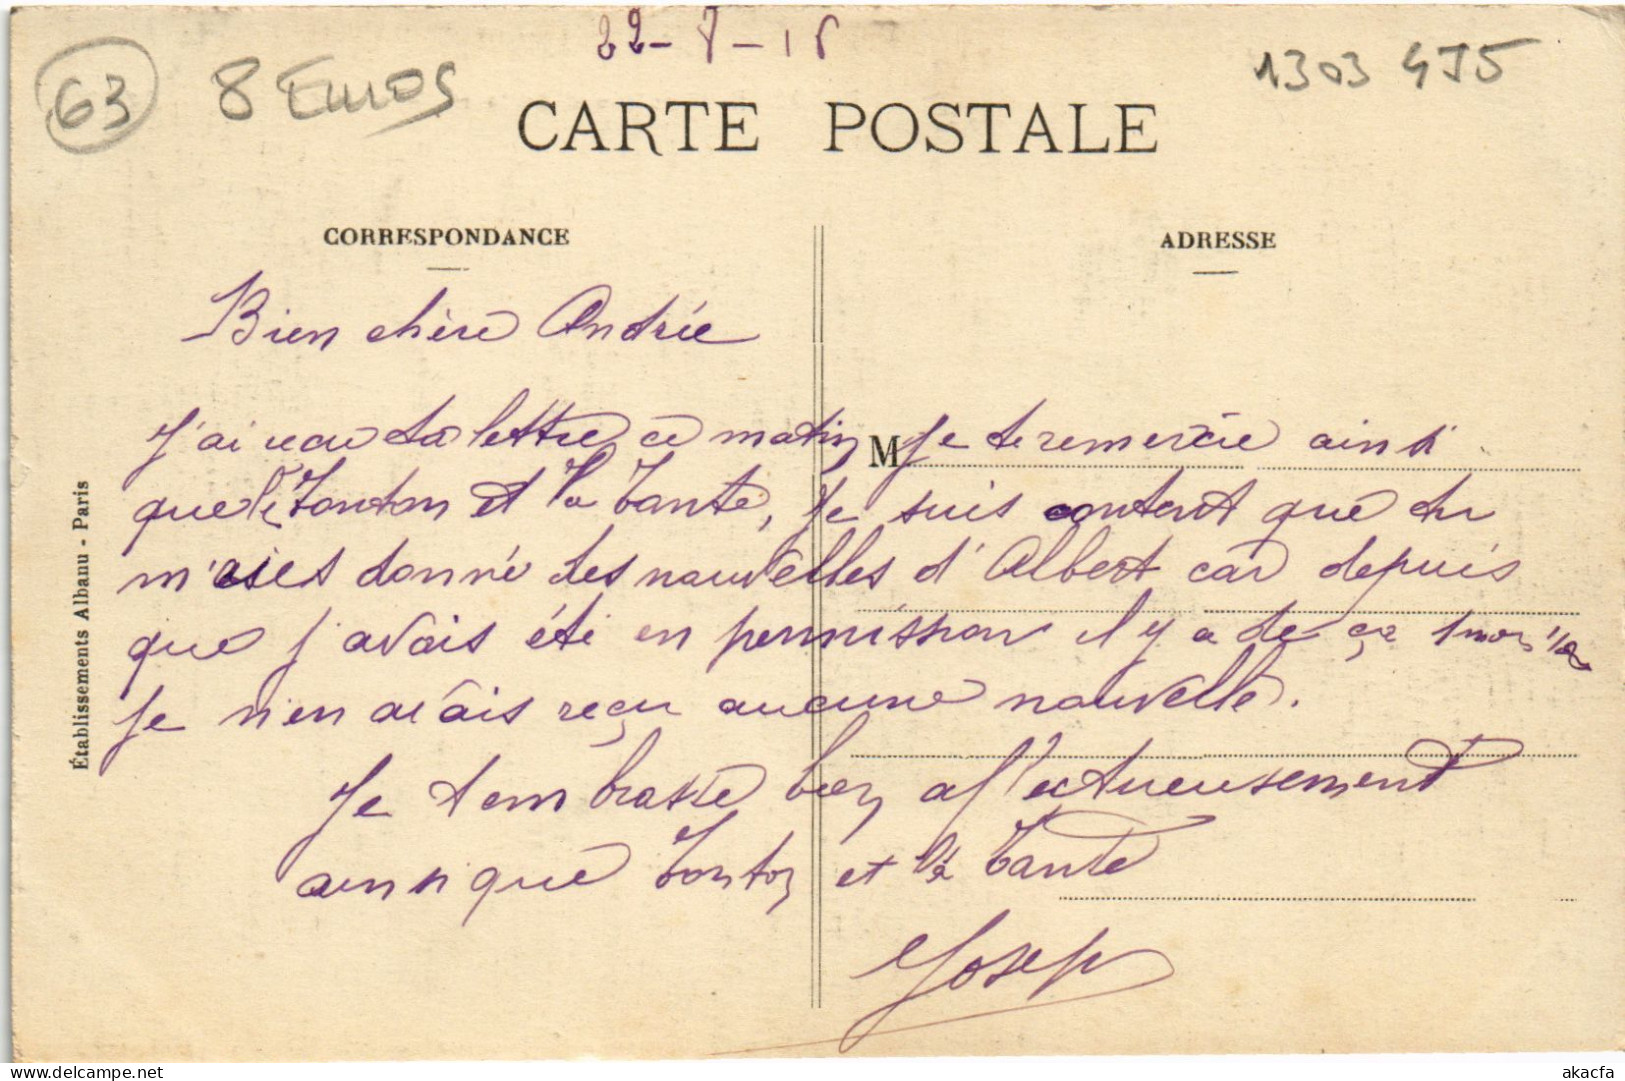 22-7-15
63 8 Euros
1303 475
CARTE POSTALE
CORRESPONDANCE
ADRESSE
Bien chère Andrée
J'ai recu ta lettre ce matin Je te remercie ainsi
M
que le Tonton et la Tante, Je suis content que tu
m'aies donné des nouvelles d'Albert car depuis
que j'avais été en permission il y a de ça 1 mois 1/2
Je n'en avais reçu aucune nouvelle.
Je t'embrasse bien affectueusement
ainsi que Tonton et la Tante
Joseph
Établissements Albanu - Paris
delcampe.net
akacfa